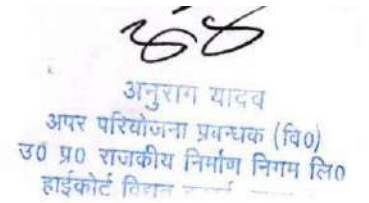 अनुराग यादव
अपर परियोजना प्रबन्धक (वि0)
उ0 प्र0 राजकीय निर्माण निगम लि0
हाईकोर्ट विद्युत